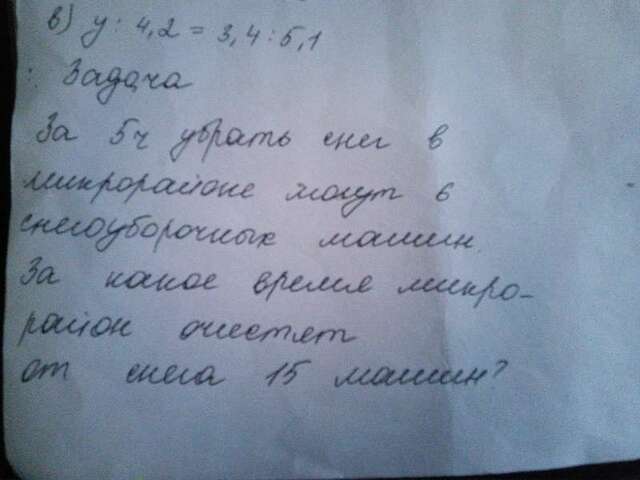 в) y : 4,2 = 3,4 : 5,1
: Задача
За 5ч убрать снег в
микрорайоне могут 6
снегоуборочных машин.
За какое время микро-
район очистят
от снега 15 машин?